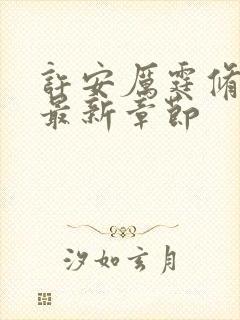 許安厲霆脩
最新章節
汐如玄月